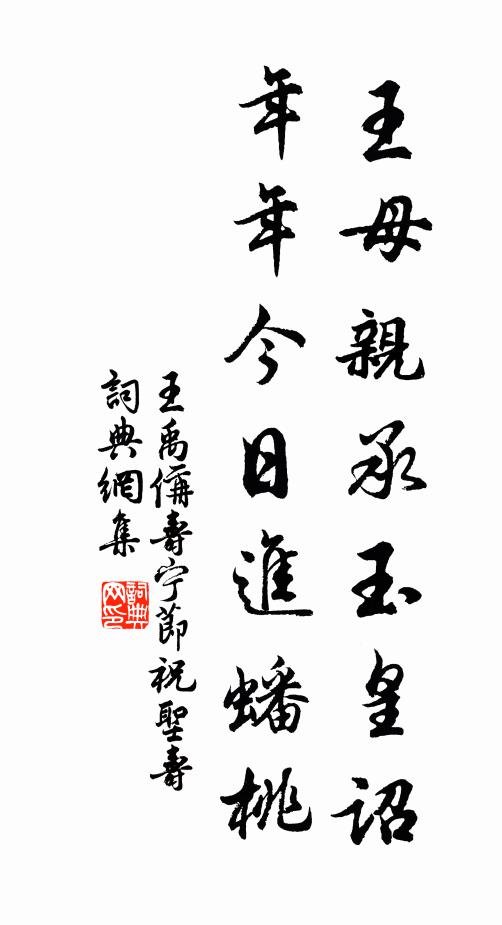 王母親承玉皇詔
年年今日進蟠桃
王禹偁壽宁節祝聖壽
詞典網集
詞典
网印